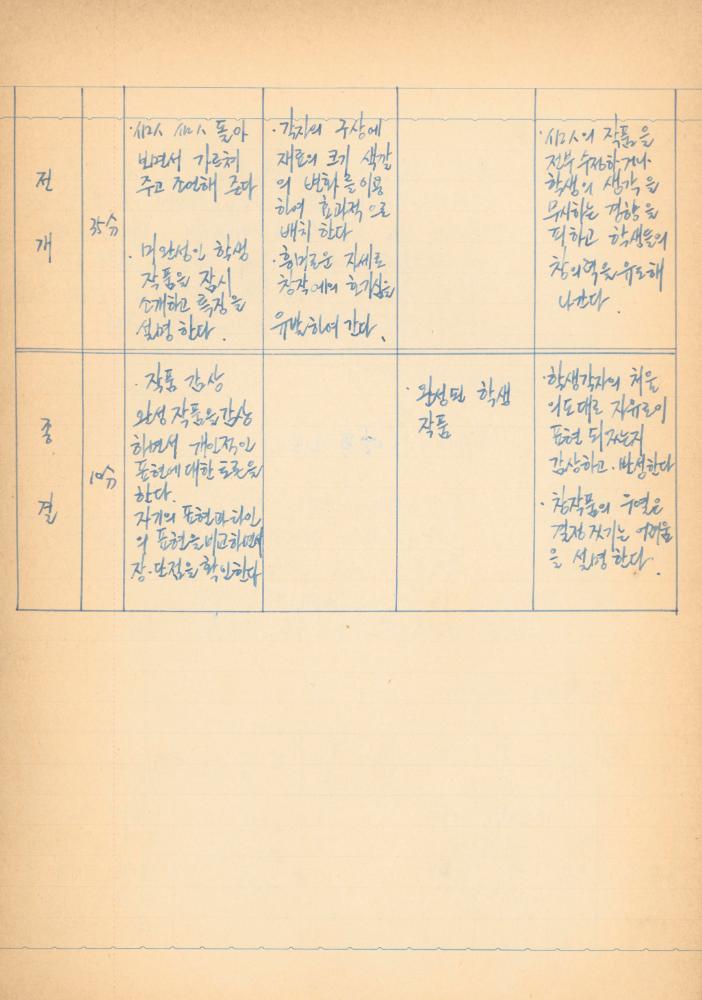 전
개
35分
돌아
보면서 가르쳐
주고 조언해 준다
· 미완성인 학생
작품을 잠시
소개하고 특징을
설명 한다.
· 각자의 구상에
재료의 크기 색깔
의 변화를 이용
하여 효과적으로
배치 한다
· 흥미로운 자세로
창작에의 호기심을
유발하여 간다.
작품을
전부 수정하거나
학생의 생각을
무시하는 경향을
피하고 학생들의
창의력을 유도해
나간다.
종
결
10分
· 작품 감상
완성작품을 감상
하면서 개인적인
표현에 대한 토론을
한다.
자기의 표현과 타인
의 표현을 비교하면서
장·단점을 확인한다
· 완성된 학생
작품
· 학생각자의 처음
의도대로 자유로이
표현 되었는지
감상하고·반성한다
· 창작품의 우열은
결정짓기는 어려움
을 설명 한다.